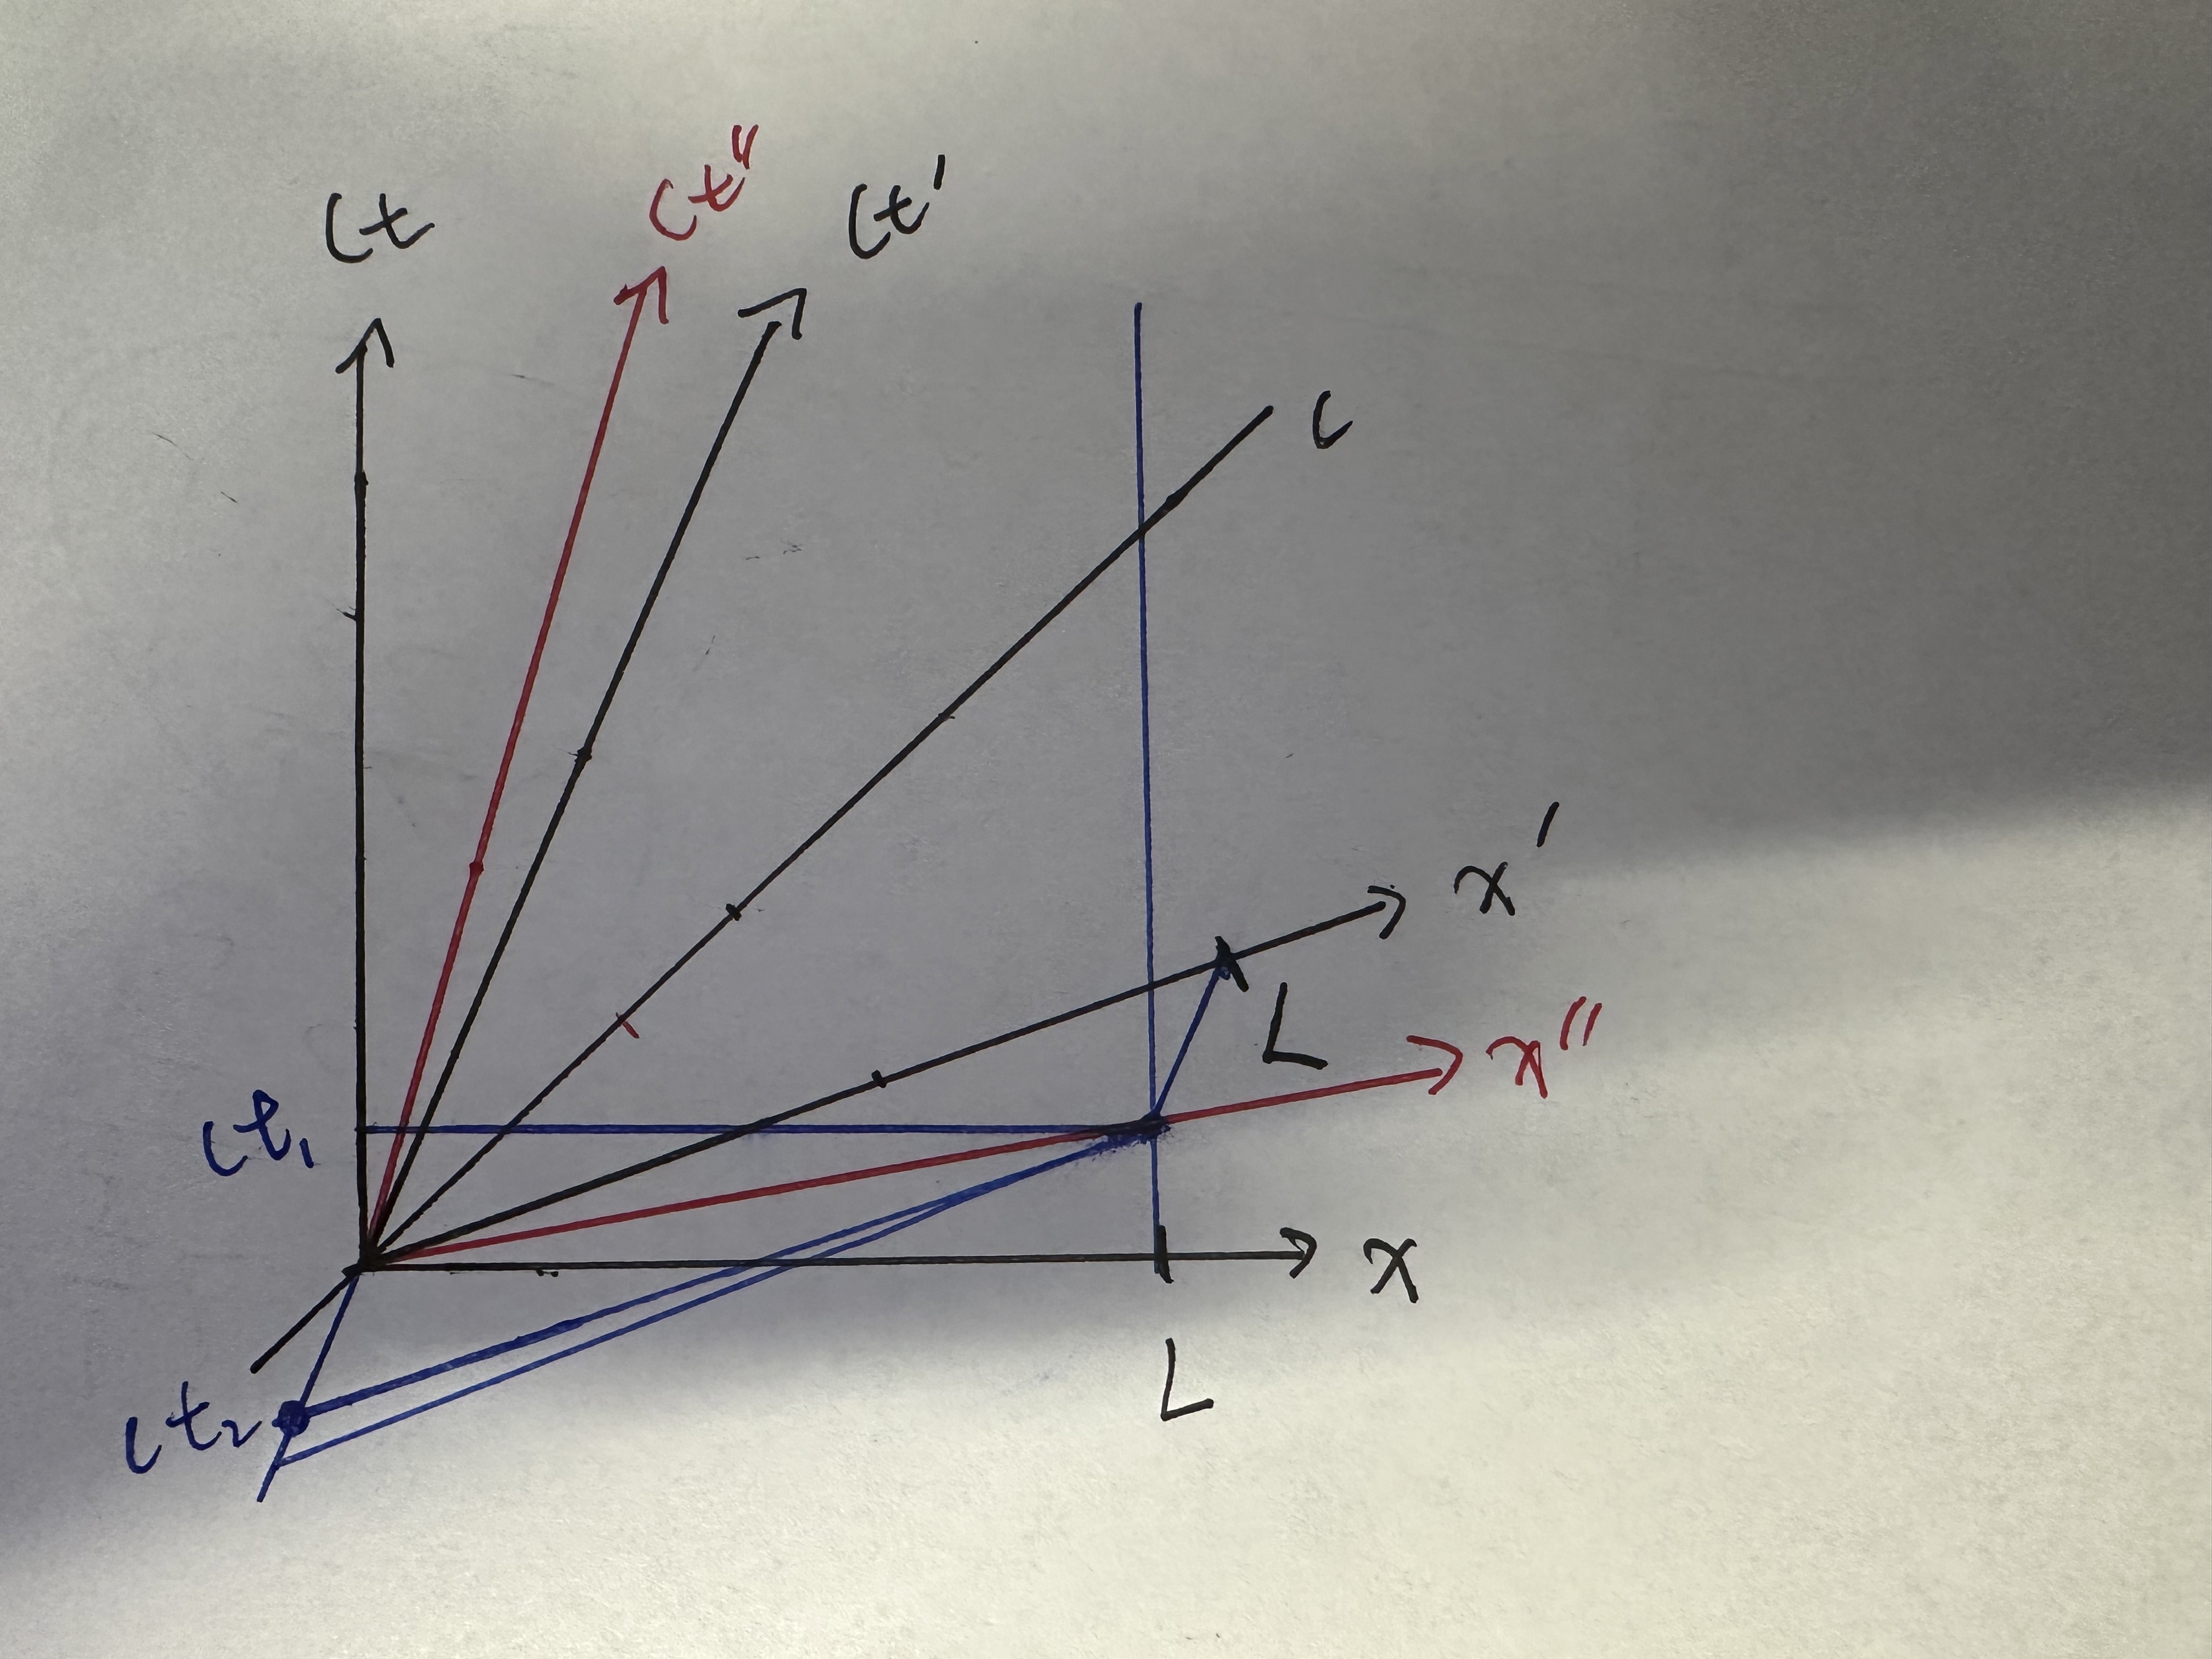 ct
ct"
ct'
c
x'
L
x"
ct₁
x
L
ct₂